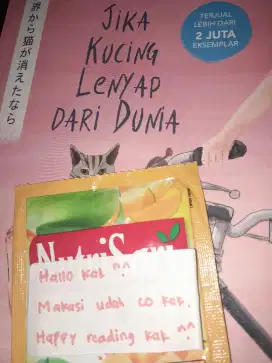 界から猫が消えたなら
JIKA
KUCING
LENYAP
DARI DUNIA
TERJUAL
LEBIH DARI
2 JUTA
EKSEMPLAR
NutriSari
Hallo kak ^^
Makasi udah co kak.
Happy reading kak ^^